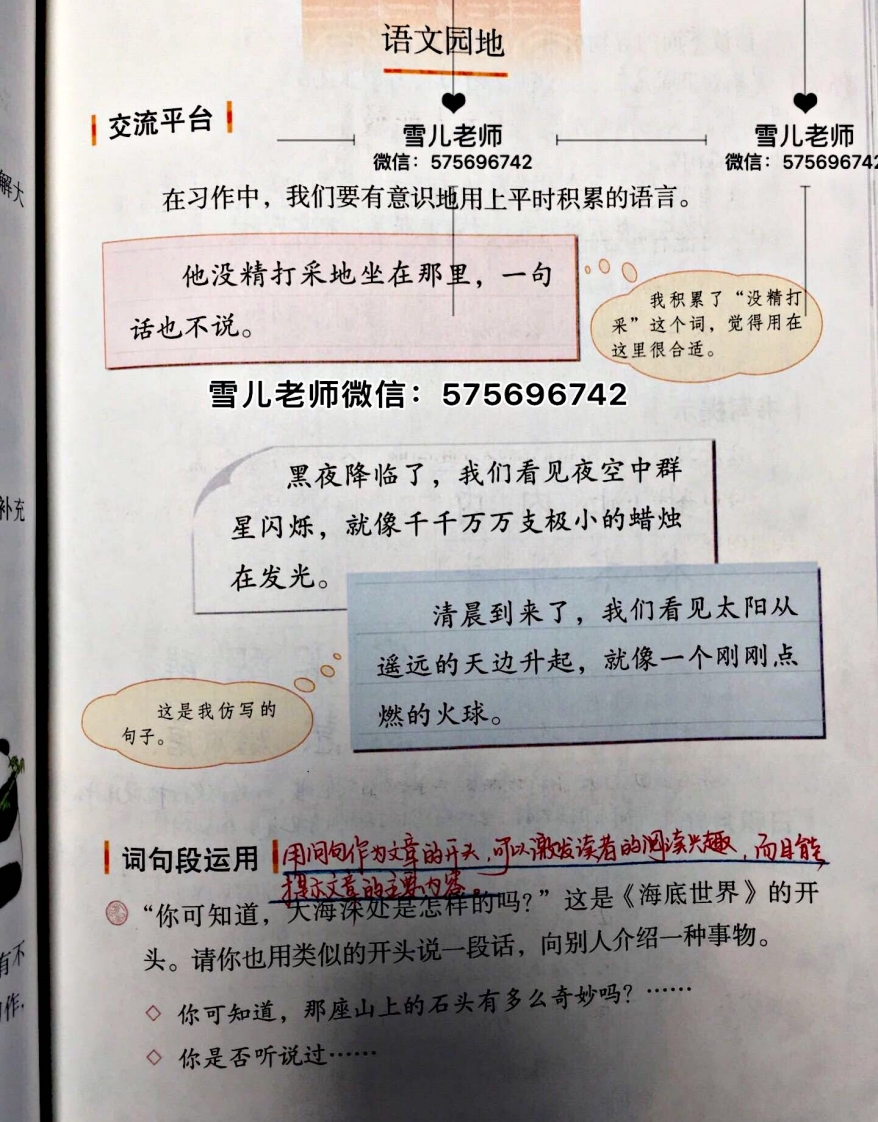 语文园地
交流平台
雪儿老师
微信：575696742
雪儿老师
微信：575696742
在习作中，我们要有意识地用上平时积累的语言。
他没精打采地坐在那里，一句
话也不说。
我积累了“没精打
采”这个词，觉得用在
这里很合适。
雪儿老师微信：575696742
黑夜降临了，我们看见夜空中群
星闪烁，就像千千万万支极小的蜡烛
在发光。
清晨到来了，我们看见太阳从
遥远的天边升起，就像一个刚刚点
燃的火球。
这是我仿写的
句子。
词句段运用
用问句作为文章的开头，可以激发读者的阅读兴趣，而且能
提示文章的主要内容。
“你可知道，大海深处是怎样的吗？”这是《海底世界》的开
头。请你也用类似的开头说一段话，向别人介绍一种事物。
◇ 你可知道，那座山上的石头有多么奇妙吗？……
◇ 你是否听说过……
解大
补充
有不
作，